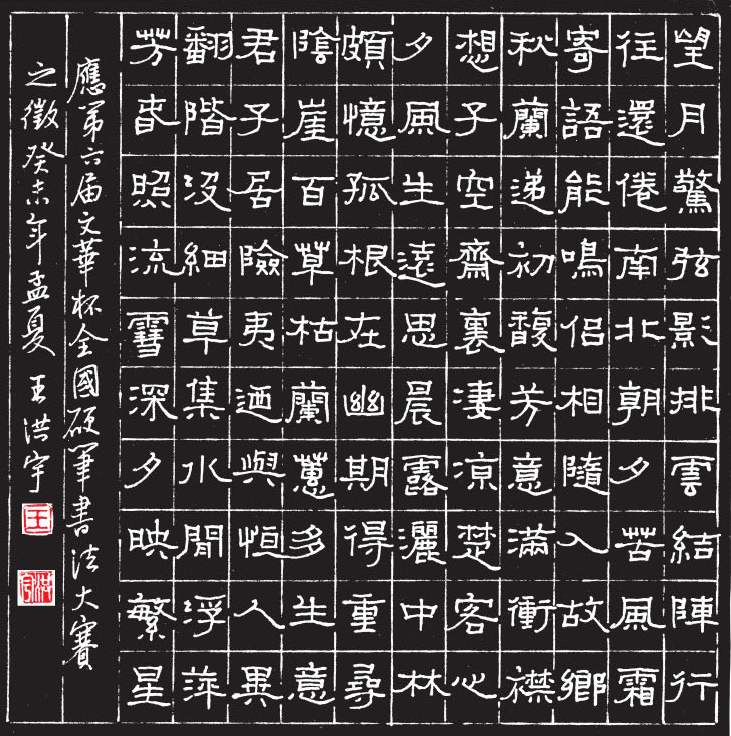 望月驚弦影排雲結陣行
往還倦南北朝夕苦風霜
寄語能鳴侶相隨入故鄉
秋蘭递初馥芳意滿衝襟
想子空齋裏凄涼楚客心
夕風生遠思晨露灑中林
頗憶孤根在幽期得重尋
陰崖百草枯蘭蕙多生意
君子居險夷迺與恒人異
翻階沒細草集水間浮萍
芳春照流雪深夕映繁星
應第六届文華杯全國硬筆書法大賽
之徵癸未年孟夏 王洪宇
王
洪宇